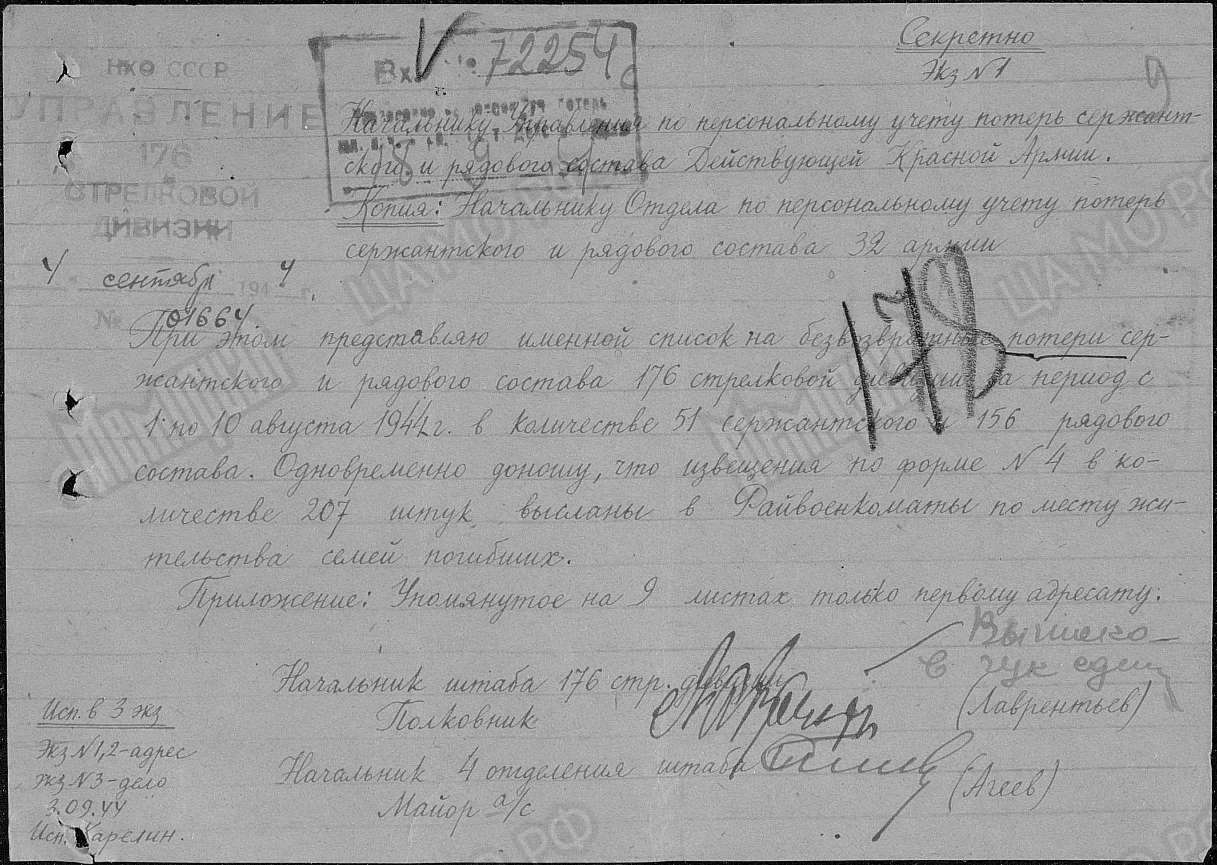 Секретно
Экз N 1
9
НКО СССР
УПРАВЛЕНИЕ
176
СТРЕЛКОВОЙ
ДИВИЗИИ
4 сентября 1944 г.
№ 01664
Вх № 72254
Начальнику Управления по персональному учету потерь сержант-
ского и рядового состава Действующей Красной Армии.
Копия: Начальнику Отдела по персональному учету потерь
сержантского и рядового состава 32 армии
178
При этом представляю именной список на безвозвратные потери сер-
жантского и рядового состава 176 стрелковой дивизии за период с
1 по 10 августа 1944 г. в количестве 51 сержантского и 156 рядового
состава. Одновременно доношу, что извещения по форме N 4 в ко-
личестве 207 штук высланы в Райвоенкоматы по месту жи-
тельства семей погибших.
Приложение: Упомянутое на 9 листах только первому адресату.
Начальник штаба 176 стр. дивизии
Полковник (Лаврентьев)
Начальник 4 отделения штаба
Майор а/с (Агеев)
Исп. в 3 экз
Экз N 1,2-адрес
Экз N 3-дело
3.09.44
Исп. Карелин.
ЦАМО РФ
ЦАМО РФ
Мемориал
Мемориал
ЦАМО РФ